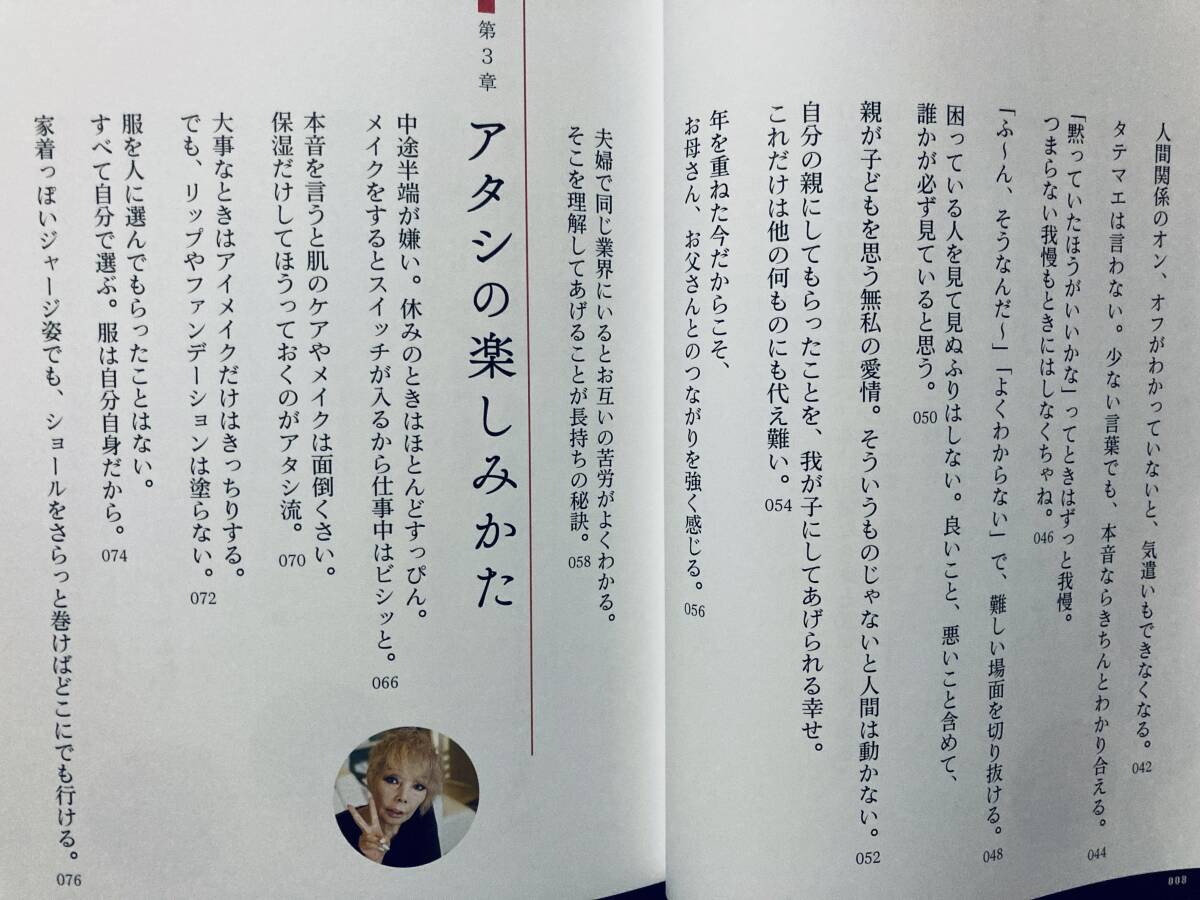 人間関係のオン、オフがわかっていないと、気遣いもできなくなる。 042
タテマエは言わない。少ない言葉でも、本音ならきちんとわかり合える。 044
「黙っていたほうがいいかな」ってときはずっと我慢。
つまらない我慢もときにはしなくちゃね。 046
「ふ〜ん、そうなんだ〜」「よくわからない」で、難しい場面を切り抜ける。 048
困っている人を見て見ぬふりはしない。良いこと、悪いこと含めて、
誰かが必ず見ていると思う。 050
親が子どもを思う無私の愛情。そういうものじゃないと人間は動かない。 052
自分の親にしてもらったことを、我が子にしてあげられる幸せ。
これだけは他の何ものにも代え難い。 054
年を重ねた今だからこそ、
お母さん、お父さんとのつながりを強く感じる。 056
008
夫婦で同じ業界にいるとお互いの苦労がよくわかる。
そこを理解してあげることが長持ちの秘訣。 058
第3章
アタシの楽しみかた
中途半端が嫌い。休みのときはほとんどすっぴん。
メイクをするとスイッチが入るから仕事中はビシッと。 066
本音を言うと肌のケアやメイクは面倒くさい。
保湿だけしてほうっておくのがアタシ流。 070
大事なときはアイメイクだけはきっちりする。
でも、リップやファンデーションは塗らない。 072
服を人に選んでもらったことはない。
すべて自分で選ぶ。服は自分自身だから。 074
家着っぽいジャージ姿でも、ショールをさらっと巻けばどこにでも行ける。 076